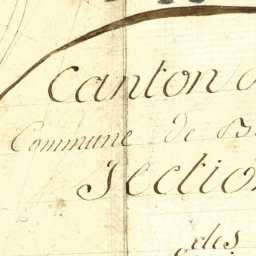 Canton
Commune de B
Section
des